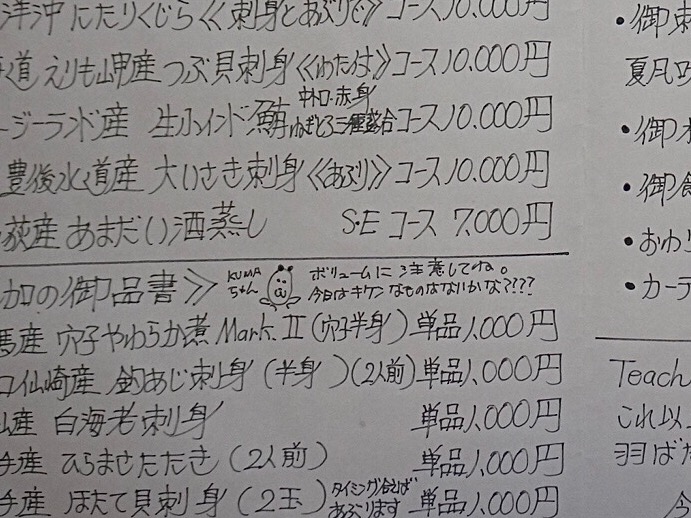 洋沖 にたりくじら《刺身とあぶりで》コース10.000円
道 えりも岬産 つぶ貝刺身《わたは》コース10.000円
ージーランド産 生本インド鮪 中トロ・赤身 ねぎとろ三種盛合 コース10.000円
豊後水道産 大いさき刺身《あぶり》コース10.000円
荻産 あまだい酒蒸し S・E コース 7.000円
加の御品書≫ KUMAちゃん ボリュームに注意してね。
今日はキケンなものはないかな????
馬産 穴子やわらか煮 Mark.Ⅱ(穴子半身)単品1.000円
口仙崎産 釣あじ刺身(半身)(2人前)単品1.000円
山産 白海老刺身 単品1.000円
産 ひらまさたたき(2人前) 単品1.000円
産 ほたて貝刺身(2玉)タイミング合えば あぶります 単品1.000円
・御刺
夏風
・御
・御食
・おわり
・カーデ
Teach
これ以上
羽ばた
今